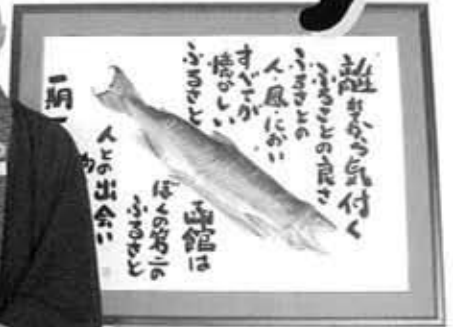 離れてから気付く
ふるさとの良さ
ふるさとの
人・風・におい
すべてが
懐かしい
ふるさと
函館は
ぼくの第二の
ふるさと
人との出会い
一期一